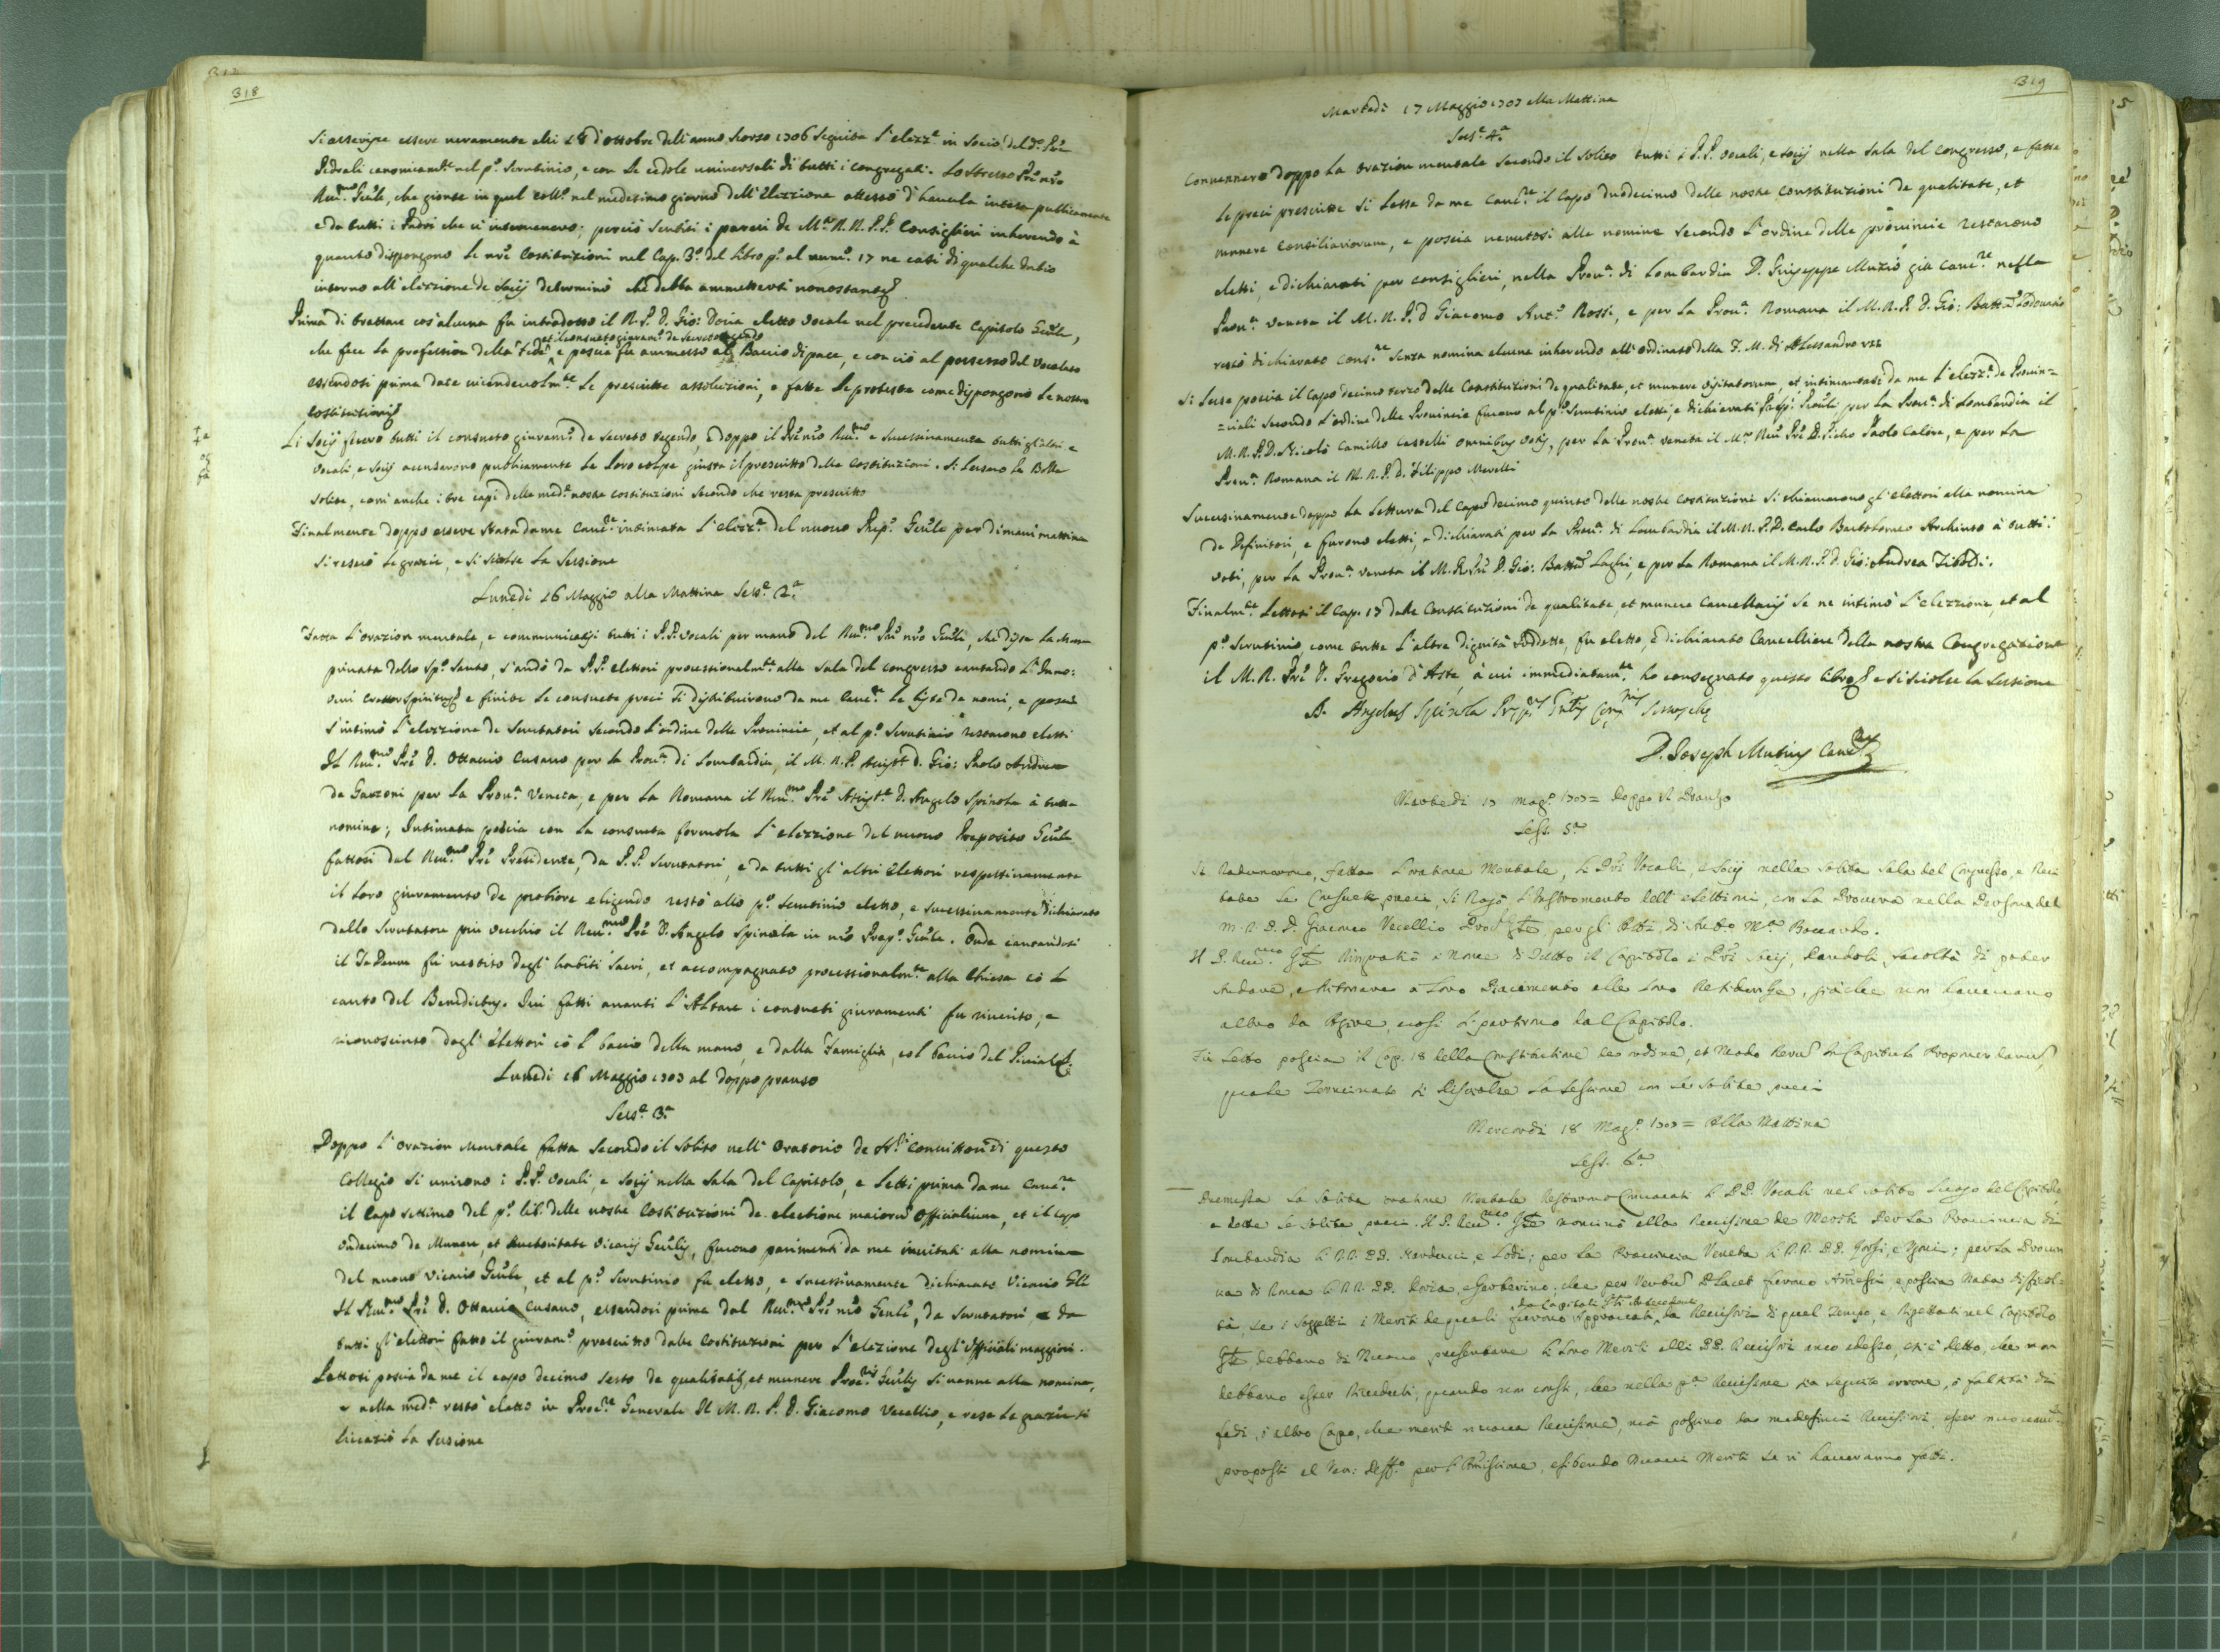 318
si asserisce essere veramente alli 28 d'ottobre dell'anno scorso 1706 seguita l'elezz.e in socio del d.o Prē
Pedrali canonicam.te nel p.o scrutinio, e con le cedole universali di tutti i congregati. Lo stesso Prē nr̄o
Rev.mo Gnle, che gionse in quel coll.o nel medesimo giorno dell'Elezzione attestò d'haverla intesa publicamente
e da tutti i Padri che vi intervenero; perciò sentiti i pareri de M.to R.R. P.P. Consiglieri inherendo à
quanto dispongono le nrē Costituzioni nel Cap. 3.o del libro p.o al num.o 17 ne casi di qualche dubio
intorno all'elezzione de socij determinò che debba ammettersi nonostante
Prima di trattare cos'alcuna fu introdotto il R. P. D. Gio: Doria eletto vocale nel precedente Capitolo Gnle,
et il consueto giuram.to de secreto tegendo
che fece la profession della fede, e poscia fu ammesso al Baccio di pace, e con ciò al possesso del vocalato
essendosi prima date vicendevolm.te le prescritte assoluzioni, e fatte le proteste come dispongono le nostre
costituzioni
Li socij fecero tutti il consueto giuram.to de secreto tegendo, e doppo il Prē nr̄o Rev.mo e successivamente tutti gl'altri
vocali, e socij accusarono publicamente le loro colpe giusta il prescritto delle costituzioni. Si lessero le Bolle
solite, com'anche i tre capi delle med.e nostre costituzioni secondo che resta prescritto
Finalmente doppo essere stata da me Canc.re intimata l'elezz.e del nuovo Prep.o Gnle per dimani mattina
si resero le grazie, e si sciolse la sessione
Lunedì 16 Maggio alla Mattina Sess.e 2.a
Fatta l'orazion mentale, e communicatisi tutti i P.P. vocali per mano del Rev.mo Prē nr̄o Gnle, che disse la Messa
privata dello Sp.o Santo, s'andò da P.P. elettori processionalm.te alla sala del congresso cantando l'Inno:
veni creator spiritus e finite le consuete preci si distribuirono da me Canc.re le liste de nomi, e poscia
s'intimò l'elezzione de scrutatori secondo l'ordine delle Provincie, et al p.o scrutinio restarono eletti
Il Rev.mo Prē D. Ottavio Cusano per la Prov.a di Lombardia, il M. R. P. Assist.te D. Gio: Paolo Andrea
de Garzoni per la Prov.a Veneta, e per la Romana il Rev.mo Prē Assist.te D. Angelo Spinola à tutte
nomine; Intimata poscia con la consueta formola l'elezzione del nuovo Preposito Gnle
fattosi dal Rev.mo Prē Presidente, da P.P. scrutatori, e da tutti gl'altri Elettori respettivamente
il loro giuramento de probiore eligendo restò allo p.o scrutinio eletto, e successivamente dichiarato
dallo scrutatore più vecchio il Rev.mo Prē D. Angelo Spinola in nr̄o Prep.o Gnle. Onde cantandosi
il Te Deum fu vestito degl'habiti sacri, et accompagnato processionalm.te alla Chiesa cō l
canto del Benedictus. Ivi fatti avanti l'Altare i consueti giuramenti fu riverito, e
riconosciuto dagl'Elettori cō l bacio della mano, e dalla Famiglia, col bacio del Piviale
Lunedì 16 Maggio 1707 al doppo pranso
Sess.e 3.a
Doppo l'orazion mentale fatta secondo il solito nell'oratorio de SS.ri Convittori di questo
Collegio si unirono i P.P. vocali, e socij nella sala del Capitolo, e letti prima da me Canc.re
il capo settimo del p.o lib. delle nostre Costituzioni de electione maiorū officialium, et il capo
undecimo de Munere, et Auctoritate Vicarij Gnlis, furono parimenti da me invitati alla nomina
del nuovo Vicario Gnle, et al p.o scrutinio fu eletto, e successivamente dichiarato Vicario Gnle
Il Rev.mo Prē D. Ottavio Cusano, essendosi prima dal Rev.mo Prē nr̄o Gnle, da scrutatori, e da
tutti gl'elettori fatto il giuram.to prescritto dalle costituzioni per l'elezione degl'officiali maggiori.
Lettosi poscia da me il capo decimo sesto de qualitatib, et munere Proc.ris Gnlis si venne alla nomina,
e nella med.a restò eletto in Proc.re Generale Il M. R. P. D. Giacomo Vecellio, e rese le grazie si
licenziò la sessione
319
Martedì 17 Maggio 1707 alla Mattina
Sess.e 4.a
Convennero doppo la orazion mentale secondo il solito tutti i P.P. vocali, e socij nella sala del congresso, e fatte
le preci prescritte si lesse da me Canc.re il Capo duodecimo delle nostre constituzioni de qualitate, et
munere consiliariorum, e poscia venutosi alle nomine secondo l'ordine delle provincie restarono
eletti, e dichiarati per consiglieri, nella Prov.a di Lombardia D. Giuseppe Muzio già Canc.re nella
Prov.a Veneta il M. R. P. D. Giacomo Ant.o Rossi, e per la Prov.a Romana il M. R. P. D. Gio: Batt.a Lodovasio
restò dichiarato cons.re senza nomina alcuna inherendo all'ordinato della F. M. di Alessandro VII
Si lesse poscia il Capo decimo terzo delle Constituzioni de qualitate, et munere visitatorum, et intimatasi da me l'elezz.e de Provin=
=ciali secondo l'ordine delle Provincie furono al p.o scrutinio eletti, e dichiarati Prepi. Provli per la Prov.a di Lombardia il
M. R. P. D. Nicolò Camillo Castelli omnibus votis, per la Prov.a veneta il M.to Rev. Prē D. Pietro Paolo Calère, e per la
Prov.a Romana il M. R. P. D. Filippo Merelli
Successivamente doppo la lettura del Capo decimo quinto delle nostre costituzioni si chiamarono gl'elettori alla nomina
de Definitori, e furono eletti, e dichiarati per la Prov.a di Lombardia il M. R. P. D. Carlo Bartolomeo Archinto à tutti i
voti, per la Prov.a veneta il M. R. Prē D. Gio: Batta Laghi, e per la Romana il M. R. P. D. Gio: Andrea Tiboldi.
Finalm.te lettosi il Cap. 17 delle Constituzioni de qualitate, et munere Cancellarij se ne intimò l'elezzione, et al
p.o scrutinio, come tutte l'altre dignità suddette, fu eletto, e dichiarato Cancelliere della nostra Congregazione
il M. R. Prē D. Gregorio d'Aste, à cui immediatam.te ho consegnato questo libro e si sciolse la sessione
D. Angelus Spinola
D. Joseph Mutius Canc.rius
Martedì 17 Mag.o 1707 = Doppo il Pranso
Sess. 5.a
Si Radunarono, fatta l'oratione Mentale, li PPri Vocali, e Socij nella solita sala del Congresso, e Reci
tate le Consuete preci, si Rogò l'Instromento dell'elettioni, con la Procura nella Persona del
M. R. P. D. Giacomo Vecellio
Il P. Rev.mo Gnle Ringratiò à Nome di Tutto il Capitolo i PPri socij, dandoli facoltà di poter
Andare, e Ritornare à Loro Piacimento alle Loro Residenze, giàche non havevano
altro da Agire, e così si partirono dal Capitolo.
Fù Letto poscia il Cap. 18 della Constitutione de ordine, et Modo Rerum in Capitulo Proponendarum
quale Terminato si Disciolse la Sessione con le solite preci
Mercordì 18 Mag.o 1707 = Alla Mattina
Sess. 6.a
Premessa la Solita oratione Mentale Restarono Convocati li PP. Vocali nel solito Luogo del Capitolo
e dette le solite preci. Il P. Rev.mo Gnle nominò alla Revisione de Meriti Per la Provincia di
Lombardia li RR. PP. e Lodi; per la Provincia Veneta li RR. PP. ; per la Provin
cia di Roma li RR. PP. Doria, e
tà, se i Soggetti i Meriti de quali furono Approvati da Revisori di quel Tempo, e Rigettati nel Capitolo
Gnle debbano di Nuovo presentare li Loro Meriti alli PP. Revisori anco adesso, e si è detto, che non
debbano esser Riveduti, quando non consti, che nella p.a Revisione sia seguito errore, ò falsità di
fedi, ò altro Capo, che meriti nuova Revisione, mà possino da medesimi Revisori esser
proposti al Ven: Deff.o per l'Amissione, esibendo Nuovi Meriti se vi haveranno fatti.